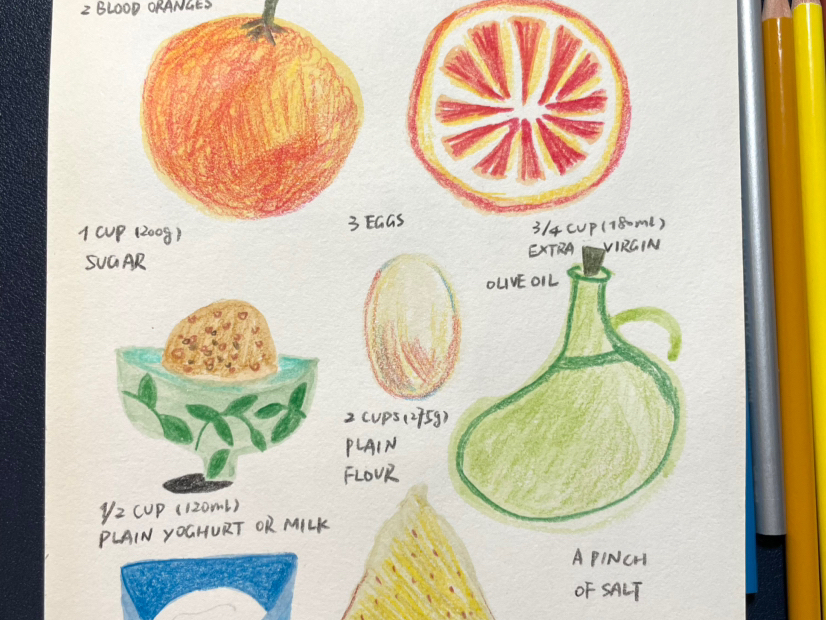 2 BLOOD ORANGES
1 CUP (200g)
SUGAR
3 EGGS
3/4 CUP (180ml)
EXTRA VIRGIN
OLIVE OIL
2 CUPS (275g)
PLAIN
FLOUR
1/2 CUP (120ml)
PLAIN YOGHURT OR MILK
A PINCH
OF SALT